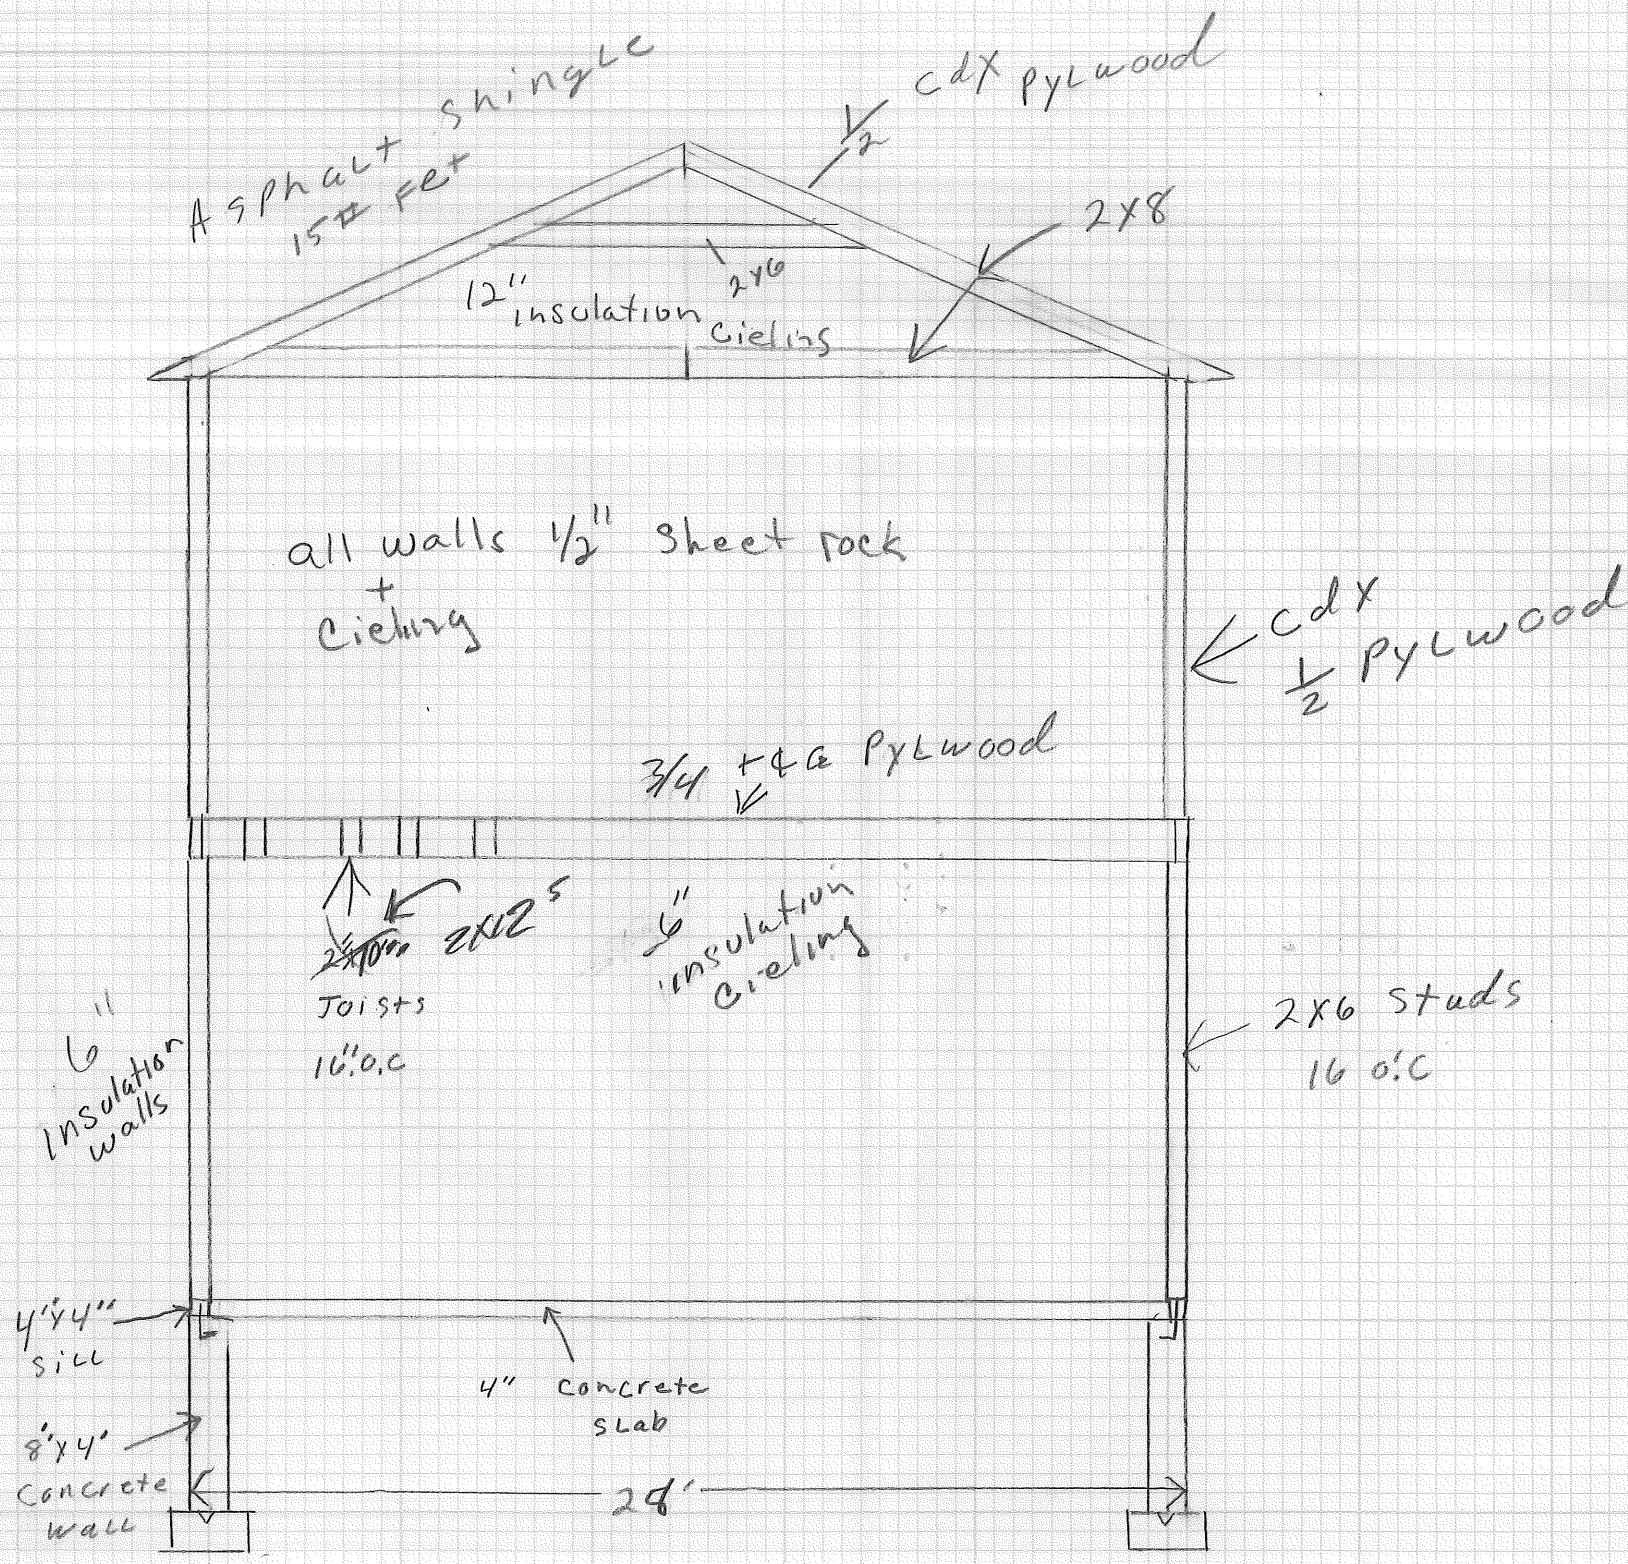 Asphalt shingle
15# Felt
1/2 cdx pylwood
2x8
2x6
12"
insulation
Cieling
all walls 1/2" Sheet rock
+
Cieling
cdx
1/2 pylwood
3/4 t&G Pylwood
2x12s
Joists
16" o.c
6"
insulation
Cieling
6"
insulation
walls
2x6 studs
16 o.c
4"x4"
sill
4" concrete
slab
8"x4'
concrete
wall
28'